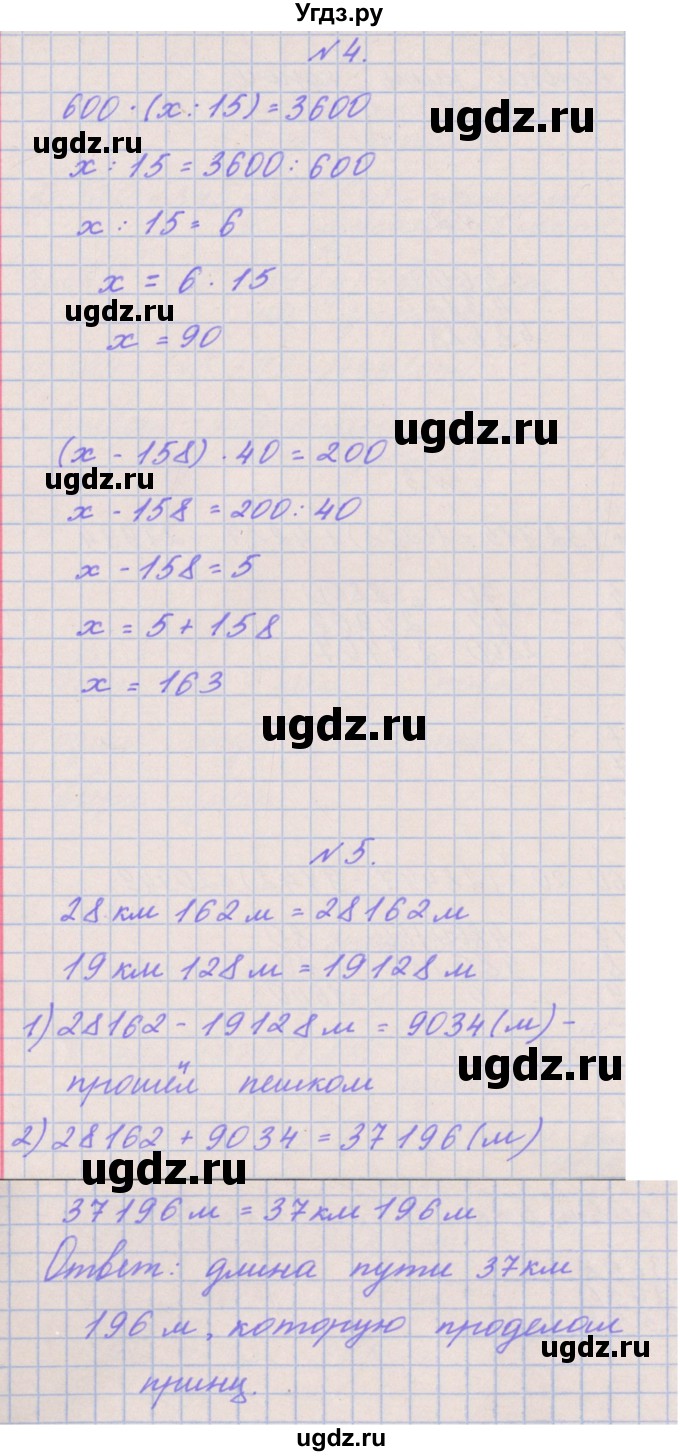 Угдз.ру
№4.
600·(x:15)=3600
ugdz.ru
ugdz.ru
x:15=3600:600
x:15=6
x=6·15
ugdz.ru
x=90
ugdz.ru
(x-158)·40=200
ugdz.ru
x-158=200:40
x-158=5
x=5+158
x=163
ugdz.ru
№5.
28 км 162 м = 28162 м
19 км 128 м = 19128 м
1) 28162 - 19128 м = 9034 (м) -
ugdz.ru
прошёл пешком
2) 28162 + 9034 = 37196 (м)
ugdz.ru
37196 м = 37 км 196 м
Ответ: длина пути 37 км
196 м, которую проделал
ugdz.ru
принц.
ugdz.ru
ugdz.ru